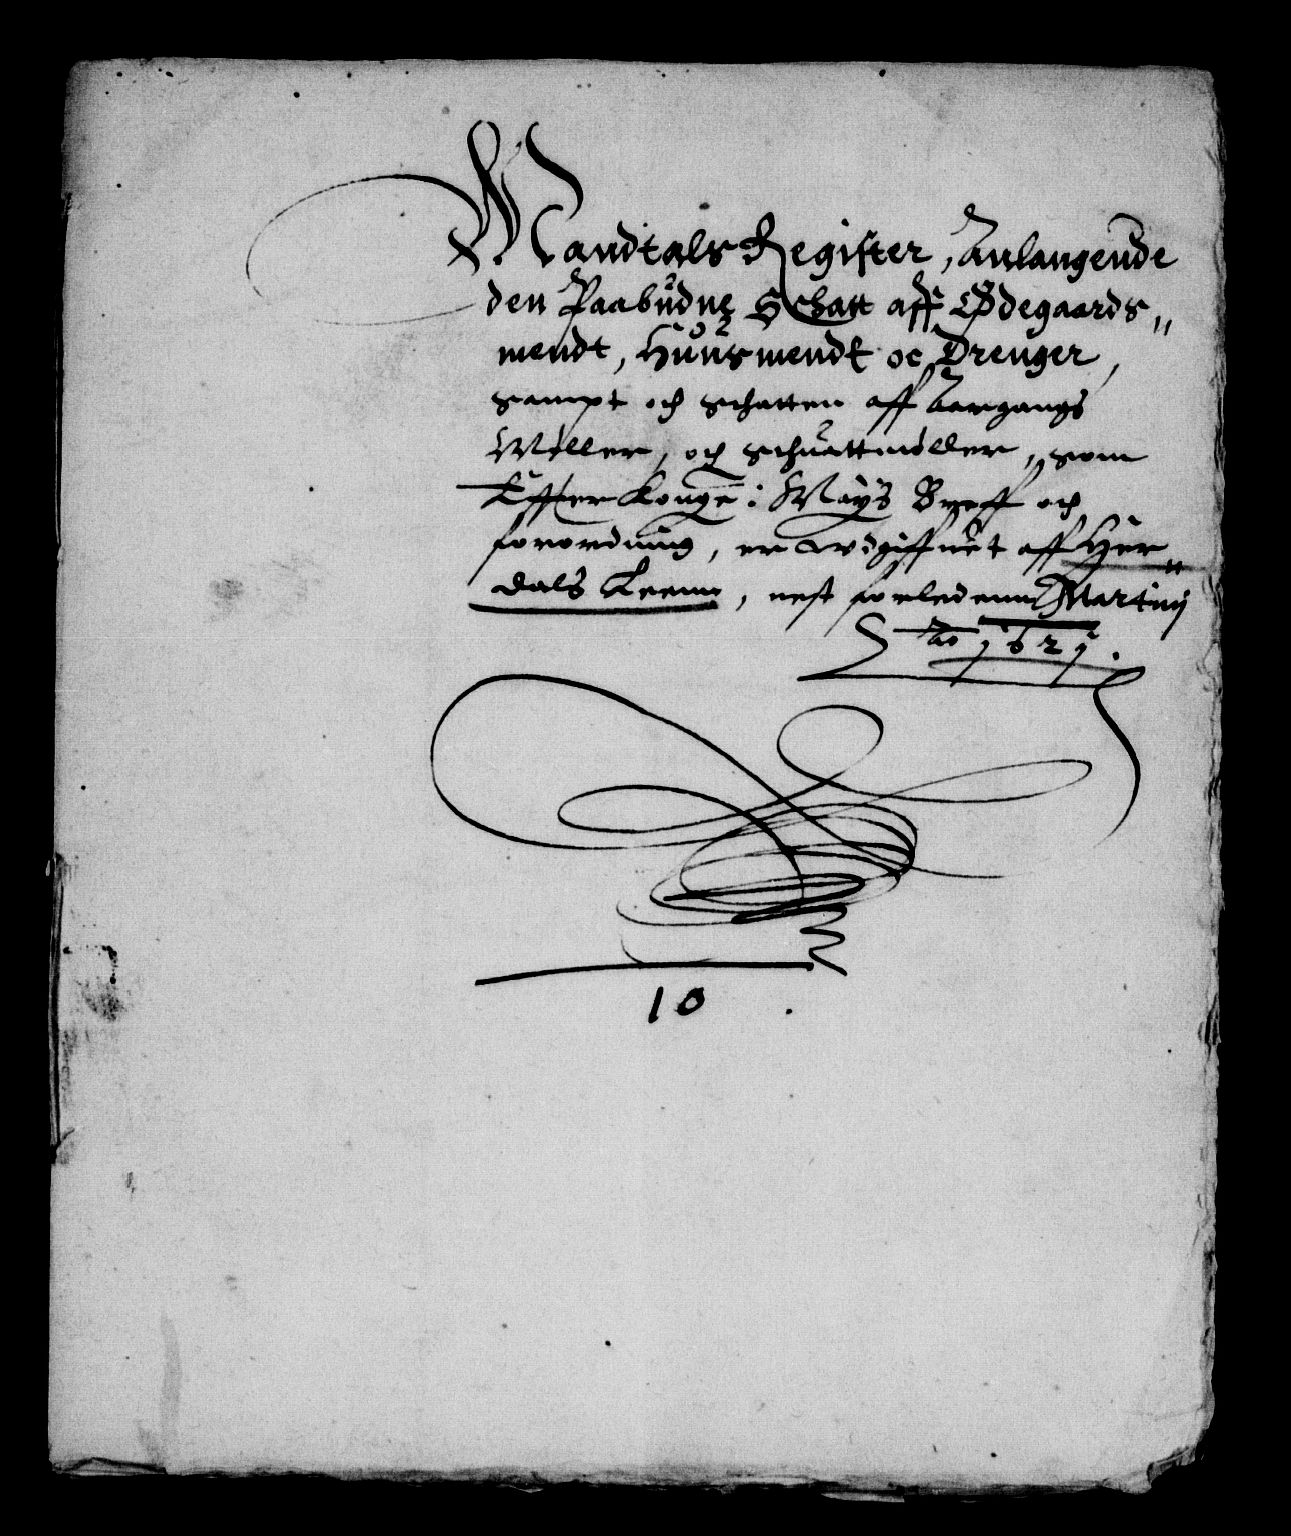 Mandtals Register, Anlangende
den Paabudne Schatt aff Ødegaards„
mendt, Huusmendt oc Drenger,
sampt och schatten aff Aargangs
Møller, och schuattmøller, som
Effter Konge: Mayts Breff och
forordning, er wdgiffuet aff Her„
dals Leenn, nest forledenn Martinj
Ao 1621.
10